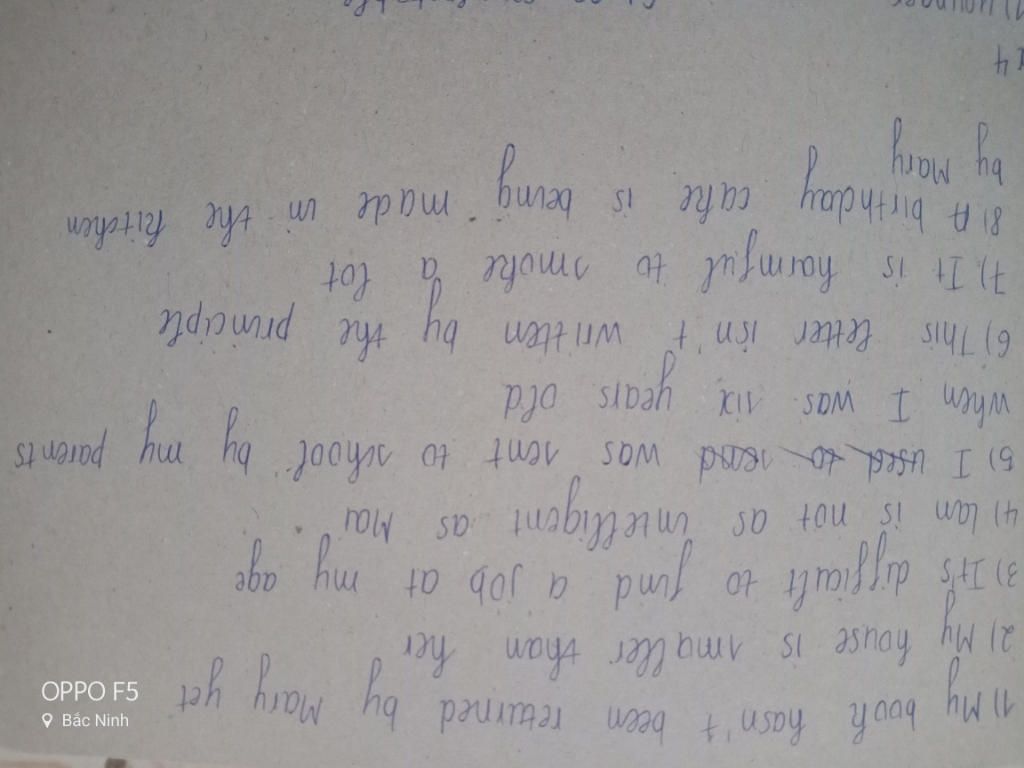 1) My book hasn't been returned by Mary yet
2) My house is smaller than her
3) It's difficult to find a job at my age
4) Lan is not as intelligent as Mai
5) I used to send was sent to school by my parents
when I was six years old
6) This letter isn't written by the principle
7) It is harmful to smoke a lot
8) A birthday cake is being made in the kitchen
by Mary
4
1) younger
OPPO F5
Bắc Ninh